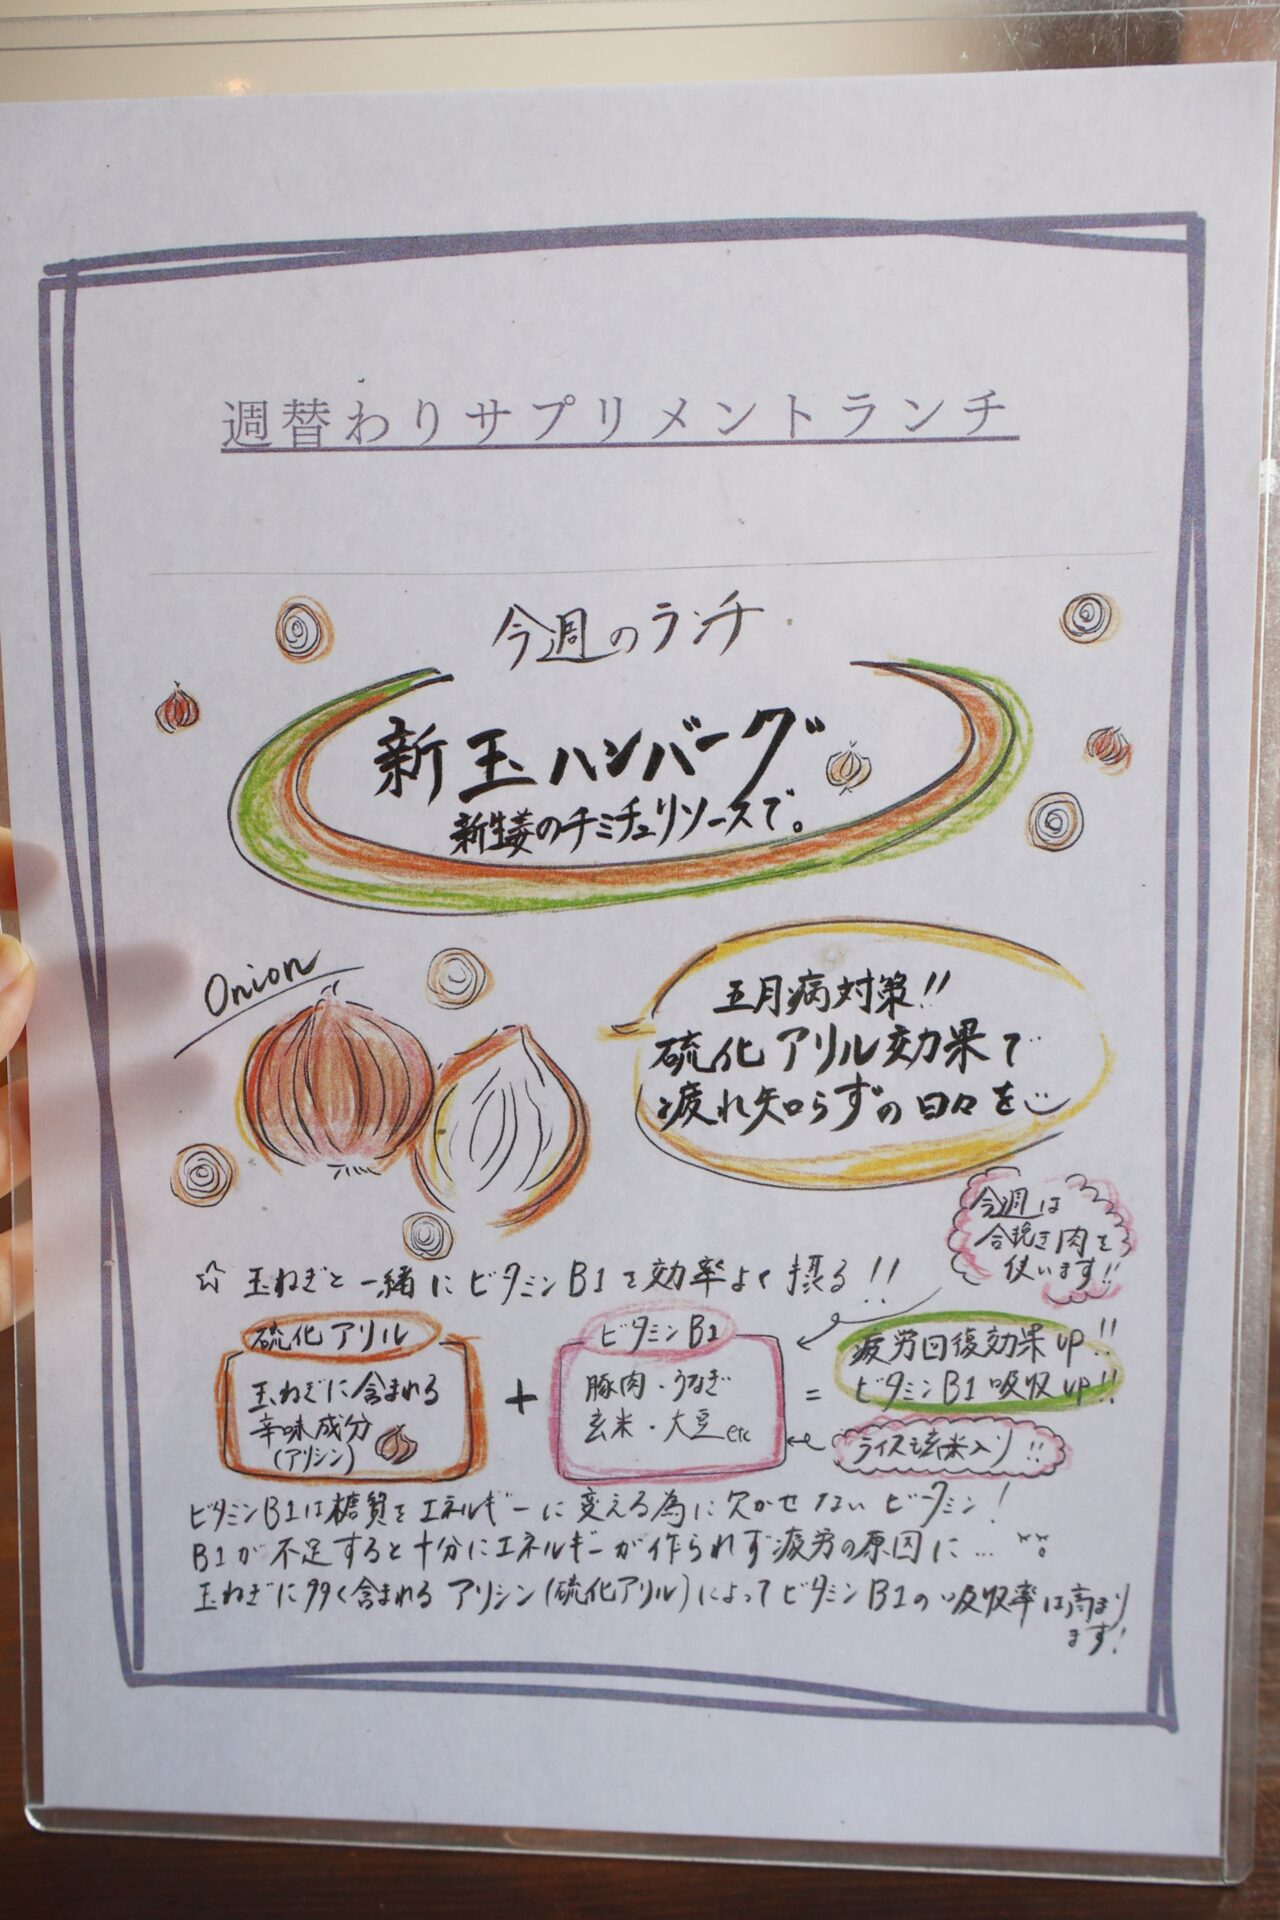 週替わりサプリメントランチ
今週のランチ
新玉ハンバーグ
新生姜のチミチュリソースで。
Onion
五月病対策!!
硫化アリル効果で
疲れ知らずの日々を
今週は
合挽き肉を
使います!!
☆玉ねぎと一緒にビタミンB1を効率よく摂る!!
硫化アリル
玉ねぎに含まれる
辛味成分
(アリシン)
+
ビタミンB1
豚肉・うなぎ
玄米・大豆etc
=
疲労回復効果up!!
ビタミンB1吸収up!!
ライスも玄米入り!!
ビタミンB1は糖質をエネルギーに変える為に欠かせないビタミン!
B1が不足すると十分にエネルギーが作られず疲労の原因に…
玉ねぎに多く含まれるアリシン(硫化アリル)によってビタミンB1の吸収率は高まり
ます!